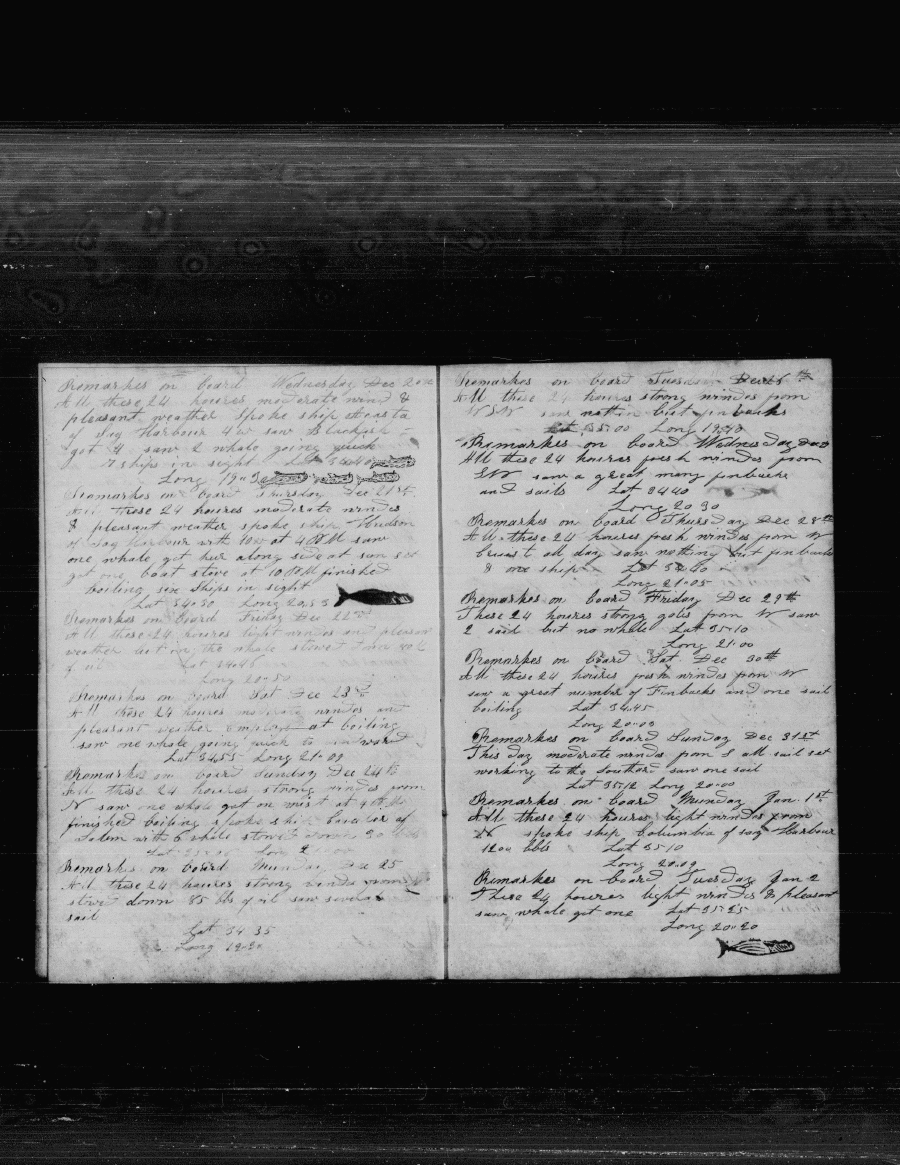 Remarkes on board Wednesday Dec 20th
All these 24 houres moderate wind &
pleasant weather Spoke ship
of Sag Harbour saw Blackfish
got 4 saw 2 whale going quick
7 ships in sight Lat 34 40
Long 19
Remarkes on board Thursday Dec 21st
All these 24 houres moderate windes
& pleasant weather spoke ship Hudson
of Sag Harbour with at 4 PM saw
one whale got her along side at sun set
got one boat stove at 10 PM finished
boiling six Ships in sight
Lat 34=30 Long 20=33
Remarkes on board Friday Dec 22nd
All these 24 houres light windes and pleasant
weather the whale stowed down
of oil Lat 34=46
Long 20=50
Remarkes on board Sat Dec 23rd
All these 24 houres moderate windes and
pleasant weather employd at boiling
saw one whale going quick to windward
Lat 34 55 Long 21=00
Remarkes on board Sunday Dec 24th
All these 24 houres strong windes from
N saw one whale got on at 4 PM
finished boiling spoke ship of
Salem with 6 whale stowed down 90
Lat Long
Remarkes on board Munday Dec 25
All these 24 houres strong windes from
stove down 85 bbs of oil saw several
sail
Lat 34 35
Long 19=20
Remarkes on board Tuesday Dec 26th
All these 24 houres strong windes from
WSW saw nothin but finbacks
Lat 35=00 Long 19=40
Remarkes on board Wednesday Dec
All these 24 houres fresh windes from
SW saw a great many finbacks
and sails Lat 34 40
Long 20 30
Remarkes on board Thursday Dec 28th
All these 24 houres fresh windes from W
all day saw nothing but finbacks
& one ship Lat
Long 21=05
Remarkes on board Friday Dec 29th
These 24 houres strong gales from W saw
2 sail but no whale Lat 35=10
Long 21=00
Remarkes on board Sat Dec 30th
All these 24 houres fresh windes from W
saw a great number of Finbacks and one sail
boiling Lat 34=45
Long 20=00
Remarkes on board Sunday Dec 31st
This day moderate windes from S all sail set
working to the Southard saw one sail
Lat 35=12 Long 20=00
Remarkes on board Munday Jan 1st
All these 24 houres light windes from
N spoke ship Columbia of Sag Harbour
1200 bbls Lat 35=10
Long 20=00
Remarkes on board Tuesday Jan 2
These 24 houres light windes & pleasant
saw whale got one Lat 35=25
Long 20=20